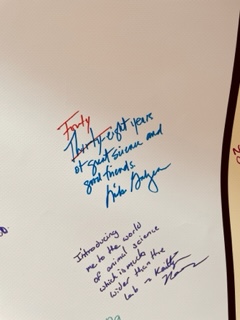 Forty
Thirty-eight years
of great science and
good friends.
Introducing
me to the world
of animal science
which is much
wider than the
lab - Kaitlyn